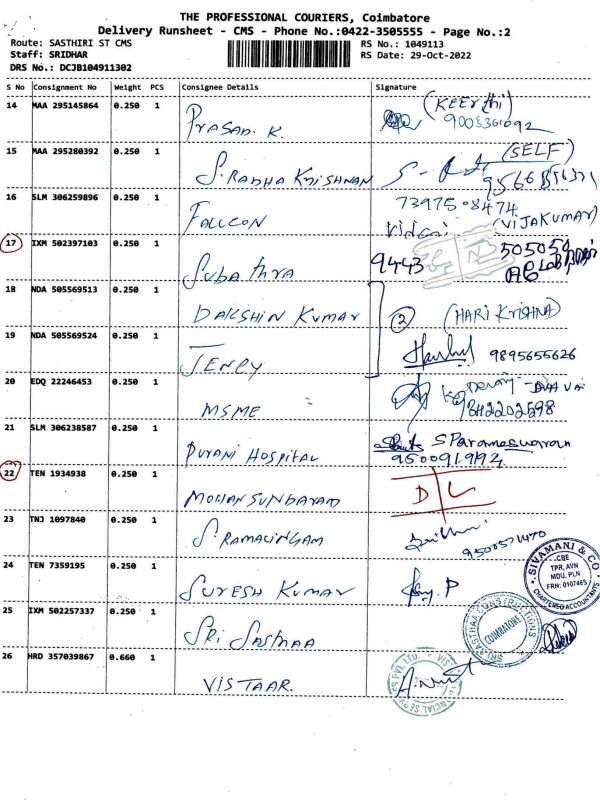 THE PROFESSIONAL COURIERS, Coimbatore
Delivery Runsheet - CMS - Phone No.:0422-3505555 - Page No.:2
Route: SASTHIRI ST CMS
Staff: SRIDHAR
DRS No.: DCJB104911302
RS No.: 1049113
RS Date: 29-Oct-2022
S No Consignment No Weight PCS Consignee Details Signature
14 MAA 295145864 0.250 1 PRASAD. K. (KEERTHI)
15 MAA 295280392 0.250 1 S. RADHA KRISHNAN (SELF)
16 SLM 306259896 0.250 1 FALCON 7397508474 (VIJAKUMAR)
17 IXM 502397103 0.250 1 SUBATHRA 9443 505059
18 NDA 505569513 0.250 1 DAKSHIN KUMAR 2 (HARI KRISHNA)
19 NDA 505569524 0.250 1 JENRY 9895655626
20 EDQ 22246453 0.250 1 MSME 9842202598
21 SLM 306238587 0.250 1 PURANI HOSPITAL S Parameswaran
22 TEN 1934938 0.250 1 MOHANSUNDARAM D L
23 TNJ 1097840 0.250 1 S. RAMALINGAM
24 TEN 7359195 0.250 1 SURESH KUMAR
SIVAMANI & CO
CBE
TPR, AVN
MDU, PLN
FRN: 010746S
CHARTERED ACCOUNTANTS
25 IXM 502257337 0.250 1 SRI SASTHAA
SRI SASTHAA CONSTRUCTIONS
COIMBATORE
26 HRD 357039867 0.660 1 VISTAAR.